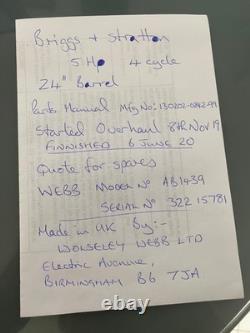 Briggs + Stratton
5 Hp 4 cycle
24" Barrel
Parts Manual Mfg No: 130202-
Started Overhaul 8th Nov 19
FINNISHED 6 JUNE 20
Quote for spares
WEBB MODEL No AB1439
SERIAL No 322 15781
Made in UK By:-
WOLSELEY WEBB LTD
Electric Avenue,
BIRMINGHAM B6 7JA